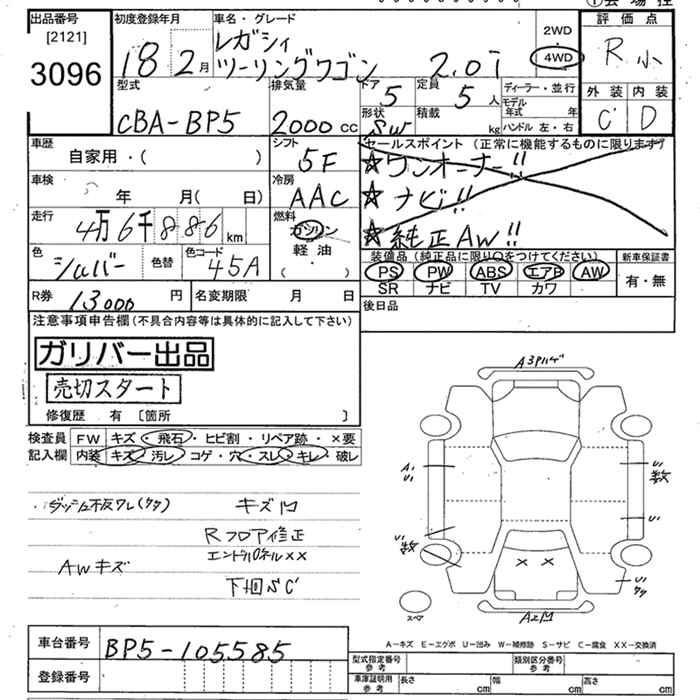 出品番号
[2121]
3096
初度登録年月
18 2月
車名・グレード
レガシィ
ツーリングワゴン 2.0i
2WD
4WD
評価点
R
外装 内装
C D
型式
CBA-BP5
排気量
2000 cc
ドア
5
定員
5 人
形状
SW
積載
kg
ディーラー・並行
モデル
年式 年
ハンドル 左・右
車歴
自家用・( )
シフト
5F
セールスポイント (正常に機能するものに限ります)
★ワンオーナー!!
★ナビ!!
★純正AW!!
車検
年 月( 日)
冷房
AAC
走行
4万6千886 km
燃料
ガソリン
軽油
・
色
シルバー
色替
色コード
45A
装備品(純正品に限り○をつけてください)
PS PW ABS エアB AW
SR ナビ TV カワ
新車保証書
有・無
R券
13000 円
名変期限 月 日
後日品
注意事項申告欄(不具合内容等は具体的に記入して下さい)
ガリバー出品
売切スタート
修復歴 有 〔箇所 〕
検査員
記入欄
FW キズ・飛石・ヒビ割・リペア跡・×要
内装 キズ・汚レ・コゲ・穴・スレ・キレ・破レ
Rフロア修正
エントパネル××
AWキズ
スペア
A=キズ E=エクボ U=凹み W=補修跡 S=サビ C=腐食 XX=交換済
車台番号
BP5-105585
登録番号
型式指定番号
参考
類別区分番号
参考
車庫証明用
参考
長さ cm
幅 cm
高さ cm